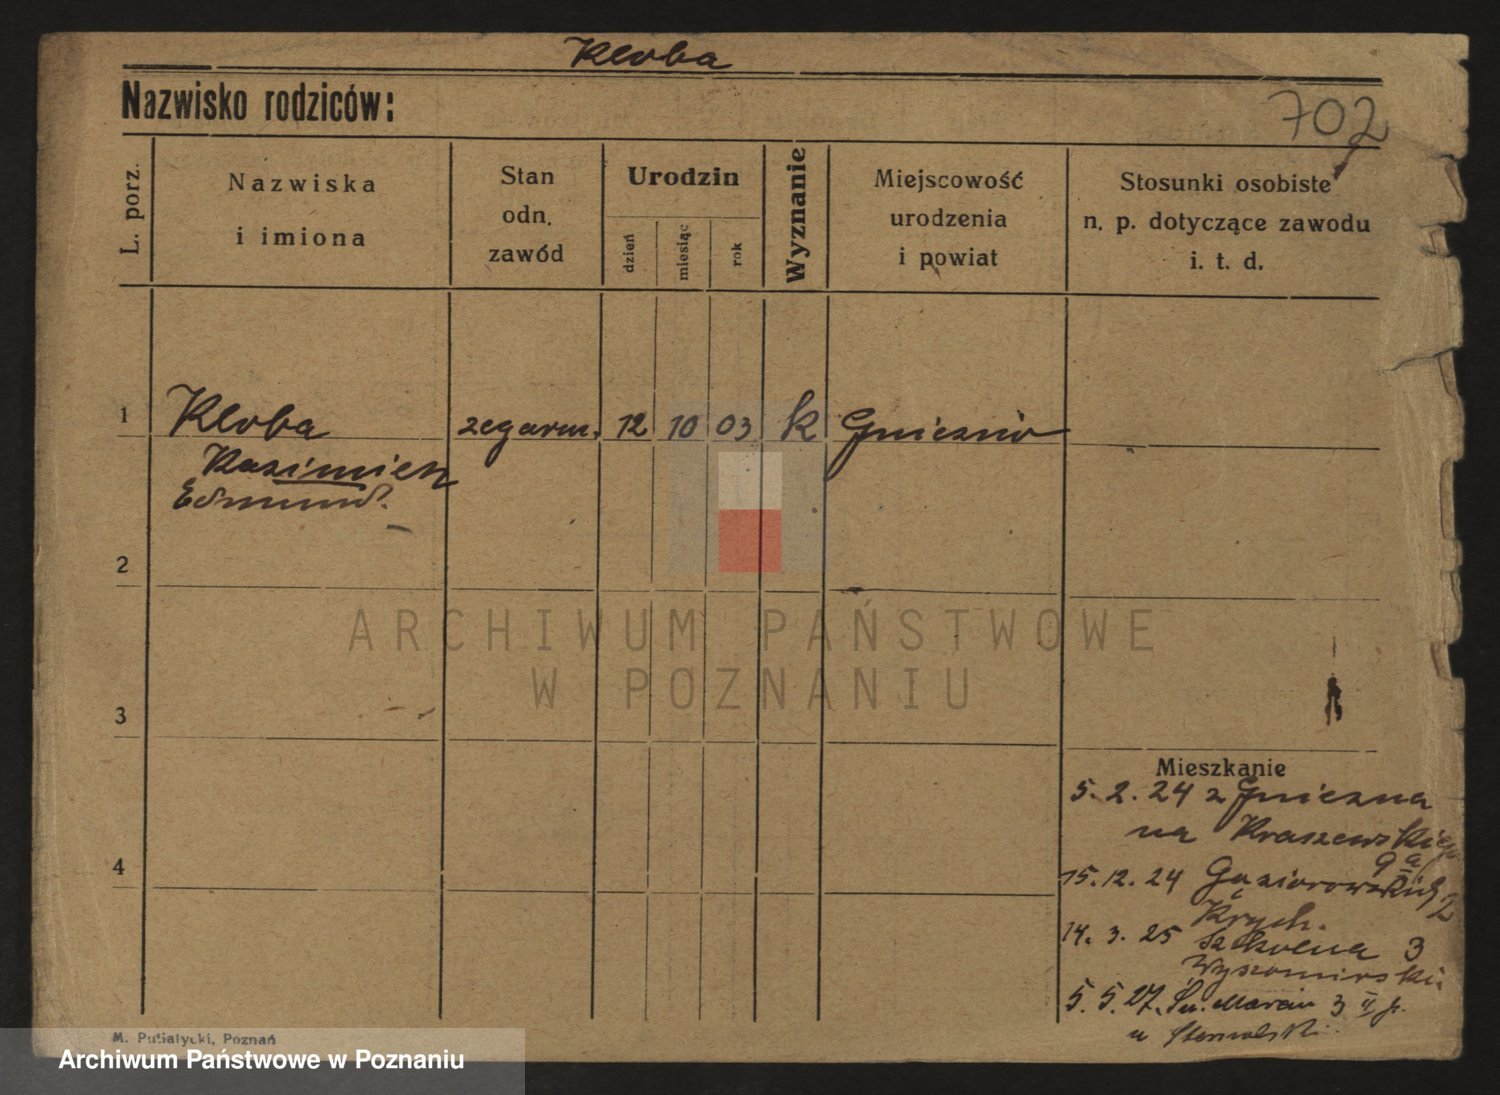 Kloba
Nazwisko rodziców:
702
L. porz.
Nazwiska
i imiona
Stan
odn.
zawód
Urodzin
dzień
miesiąc
rok
Wyznanie
Miejscowość
urodzenia
i powiat
Stosunki osobiste
n. p. dotyczące zawodu
i. t. d.
1 Kloba zegarm. 12 10 03 k Gniezno
Kazimierz
Edmund.
2
ARCHIWUM PAŃSTWOWE
W POZNANIU
3
Mieszkanie
5. 2. 24 z Gniezna
na Kraszewskiego
9a
4
15. 12. 24 Gąsiorowskich 2
14. 3. 25 Szkolna 3
Wyszomirski
5. 5. 27. Św. Marcin 3 II p.
u
M. Putiatycki, Poznań
Archiwum Państwowe w Poznaniu